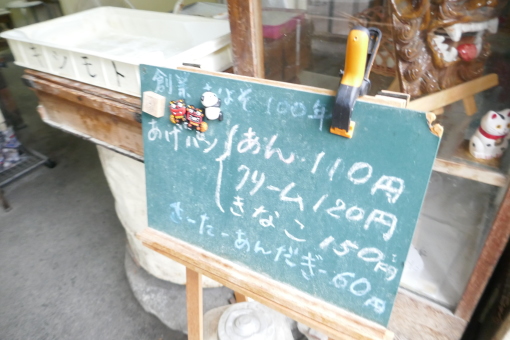 キンモト
創業 およそ100年
あげパン あん・110円
クリーム120円
きなこ150円
さーたーあんだぎー60円